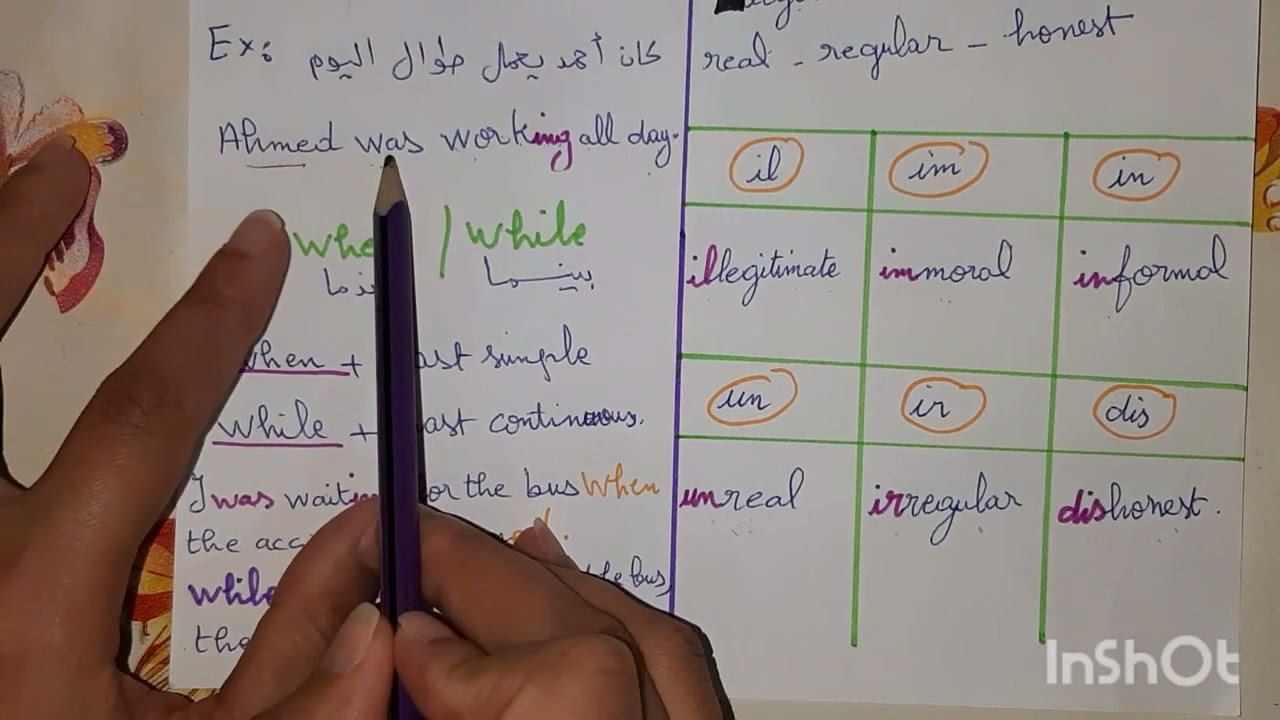 Ex: كان أحمد يعمل طوال اليوم
Ahmed was working all day.
/ while
بينما
when + past simple
while + past continuous.
I was waiting for the bus when
the
while bus,
the
real - regular - honest
il im in
illegitimate immoral informal
un ir dis
unreal irregular dishonest.
InShOt